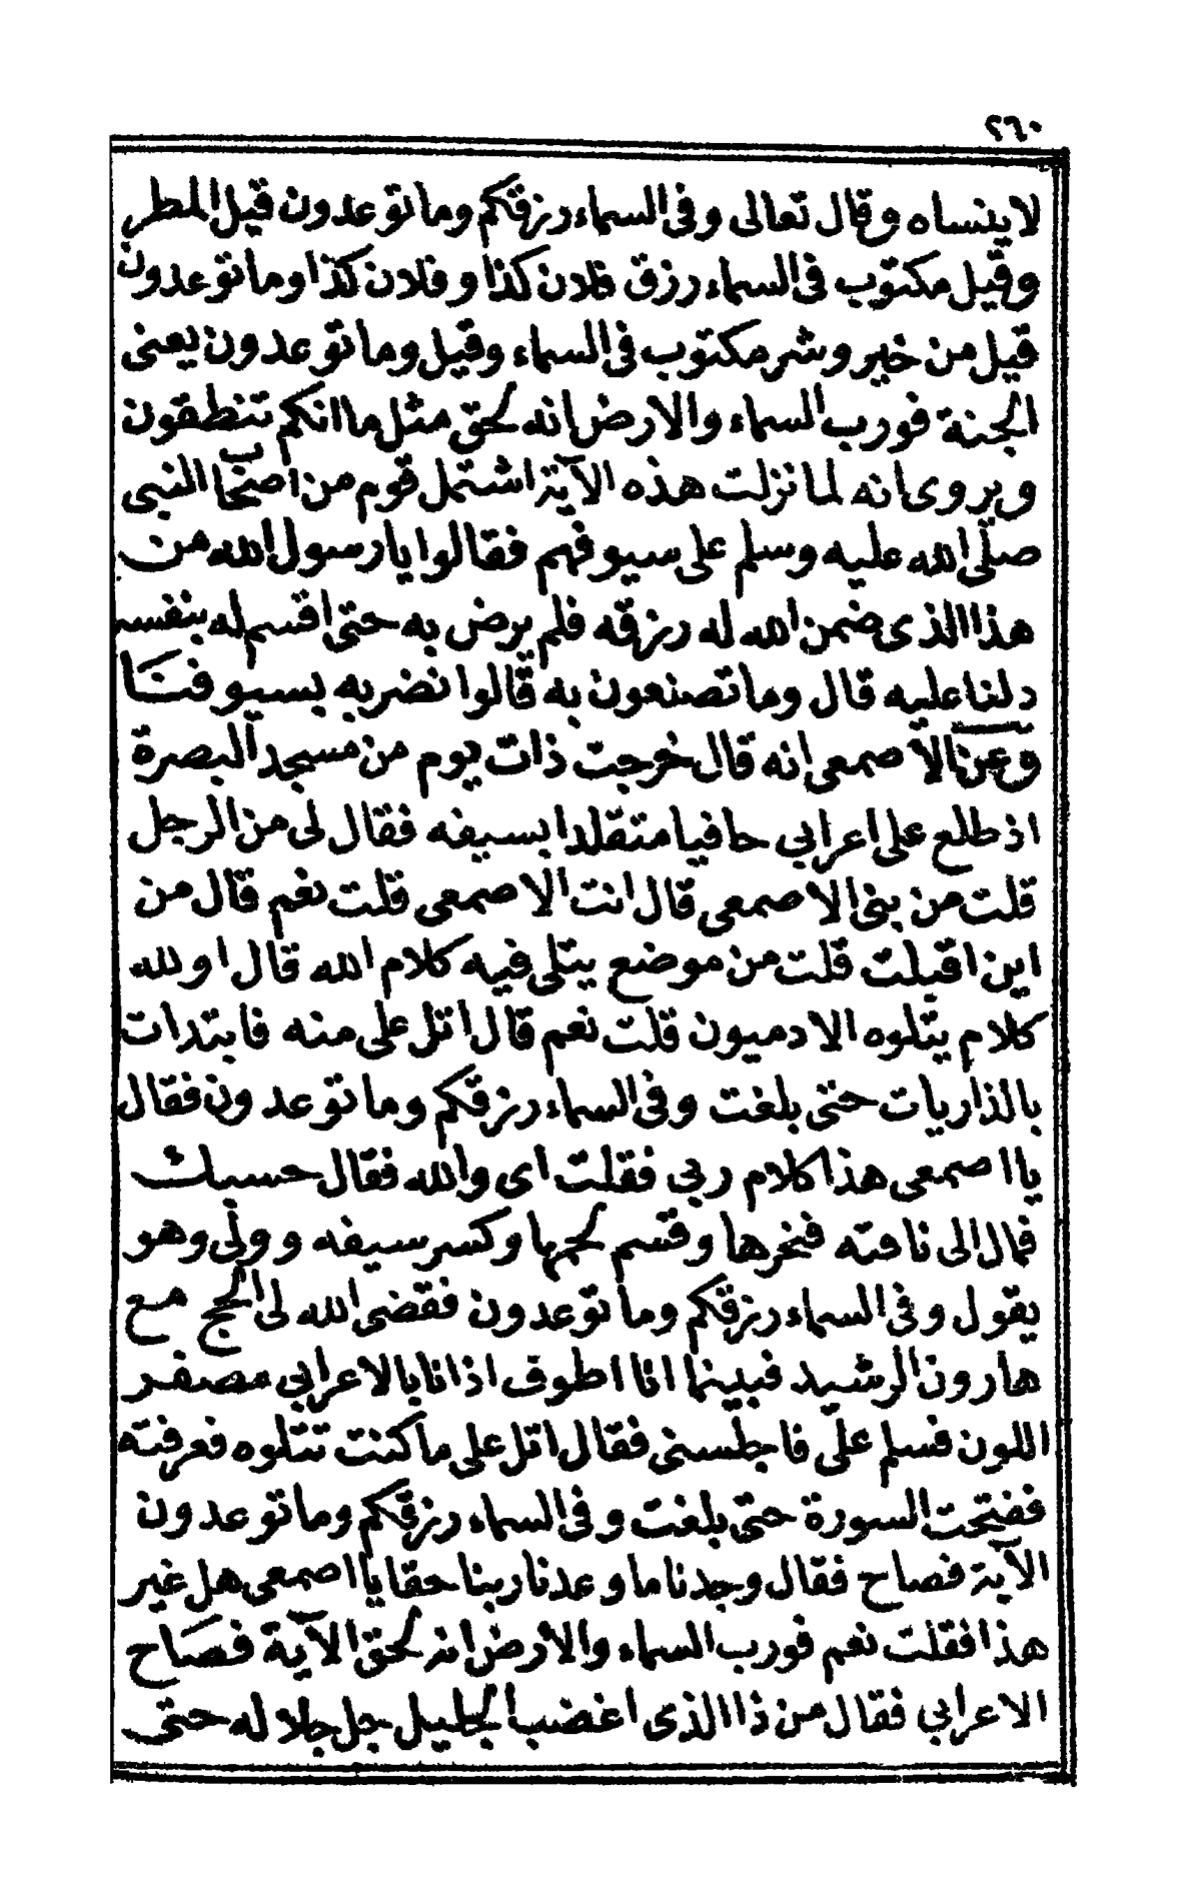 ٢٦٠
لا ينساه وقال تعالى وفى السماء رزقكم وما توعدون قيل المطر
وقيل مكتوب فى السماء رزق فلان كذا وفلان كذا وما توعدون
قيل من خير وشر مكتوب فى السماء وقيل وما توعدون يعنى
الجنة فورب السماء والارض انه لحق مثل ما انكم تنطقون
ويروى انه لما نزلت هذه الآية اشتمل قوم من اصحاب النبى
صلّى الله عليه وسلم على سيوفهم فقالوا يا رسول الله من
هذا الذى ضمن الله له رزقه فلم يرض به حتى اقسم له بنفسه
دلنا عليه قال وما تصنعون به قالوا نضربه بسيوفنا
وعن الاصمعى انه قال خرجت ذات يوم من مسجد البصرة
اذ طلع على اعرابي حافيا متقلدا بسيفه فقال لى من الرجل
قلت من بنى الاصمعى قال انت الاصمعى قلت نعم قال من
اين اقبلت قلت من موضع يتلى فيه كلام الله قال اولله
كلام يتلوه الادميون قلت نعم قال اتل على منه فابتدات
بالذاريات حتى بلغت وفى السماء رزقكم وما توعدون فقال
يا اصمعى هذا كلام ربي فقلت اى والله فقال حسبك
فمال الى ناقته فنحرها وقسم لحمها وكسر سيفه وولّى وهو
يقول وفى السماء رزقكم وما توعدون فقضى الله لى الحج مع
هارون الرشيد فبينما انا اطوف اذ انا بالاعرابي مصفر
اللون فسلم علىّ فاجلسنى فقال اتل على ما كنت تتلوه فعرفته
ففتحت السورة حتى بلغت وفى السماء رزقكم وما توعدون
الآية فصاح فقال وجدنا ما وعدنا ربنا حقا يا اصمعى هل غير
هذا فقلت نعم فورب السماء والارض انه لحق الآية فصاح
الاعرابي فقال من ذا الذى اغضب الجليل جل جلاله حتى